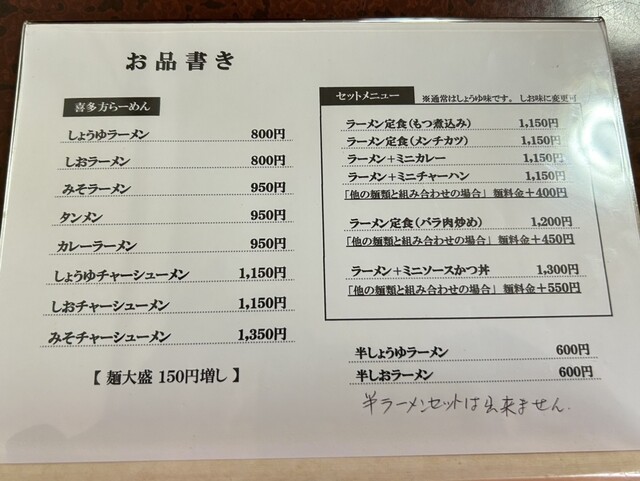 お品書き
喜多方らーめん
しょうゆラーメン 800円
しおラーメン 800円
みそラーメン 950円
タンメン 950円
カレーラーメン 950円
しょうゆチャーシューメン 1,150円
しおチャーシューメン 1,150円
みそチャーシューメン 1,350円
【 麺大盛 150円増し 】
セットメニュー ※通常はしょうゆ味です。 しお味に変更可
ラーメン定食(もつ煮込み) 1,150円
ラーメン定食(メンチカツ) 1,150円
ラーメン+ミニカレー 1,150円
ラーメン+ミニチャーハン 1,150円
「他の麺類と組み合わせの場合」 麺料金+400円
ラーメン定食(バラ肉炒め) 1,200円
「他の麺類と組み合わせの場合」 麺料金+450円
ラーメン+ミニソースかつ丼 1,300円
「他の麺類と組み合わせの場合」 麺料金+550円
半しょうゆラーメン 600円
半しおラーメン 600円
半ラーメンセットは出来ません.